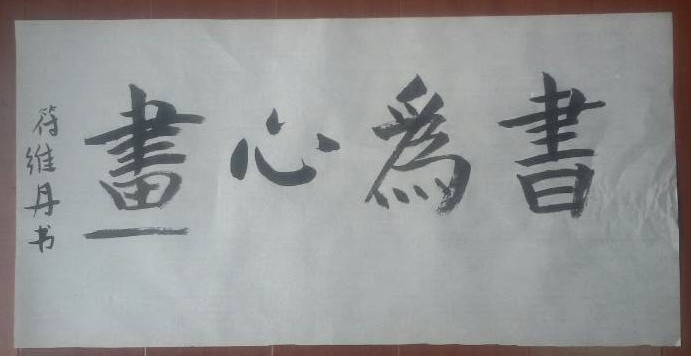 書爲心畫
符維丹书